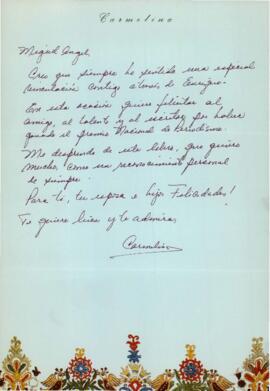 Carmelina
Miguel Angel,
Creo que siempre he sentido una especial
contigo
En esta ocasión quiero felicitar al
amigo, al talento y al escritor por haber
ganado el premio Nacional de Periodismo.
Me desprendo de este libro, que quiero
mucho, como un reconocimiento personal
de siempre.
Para ti, tu esposa e hijos Felicidades!
Te quiere bien y te admira,
Carmelina